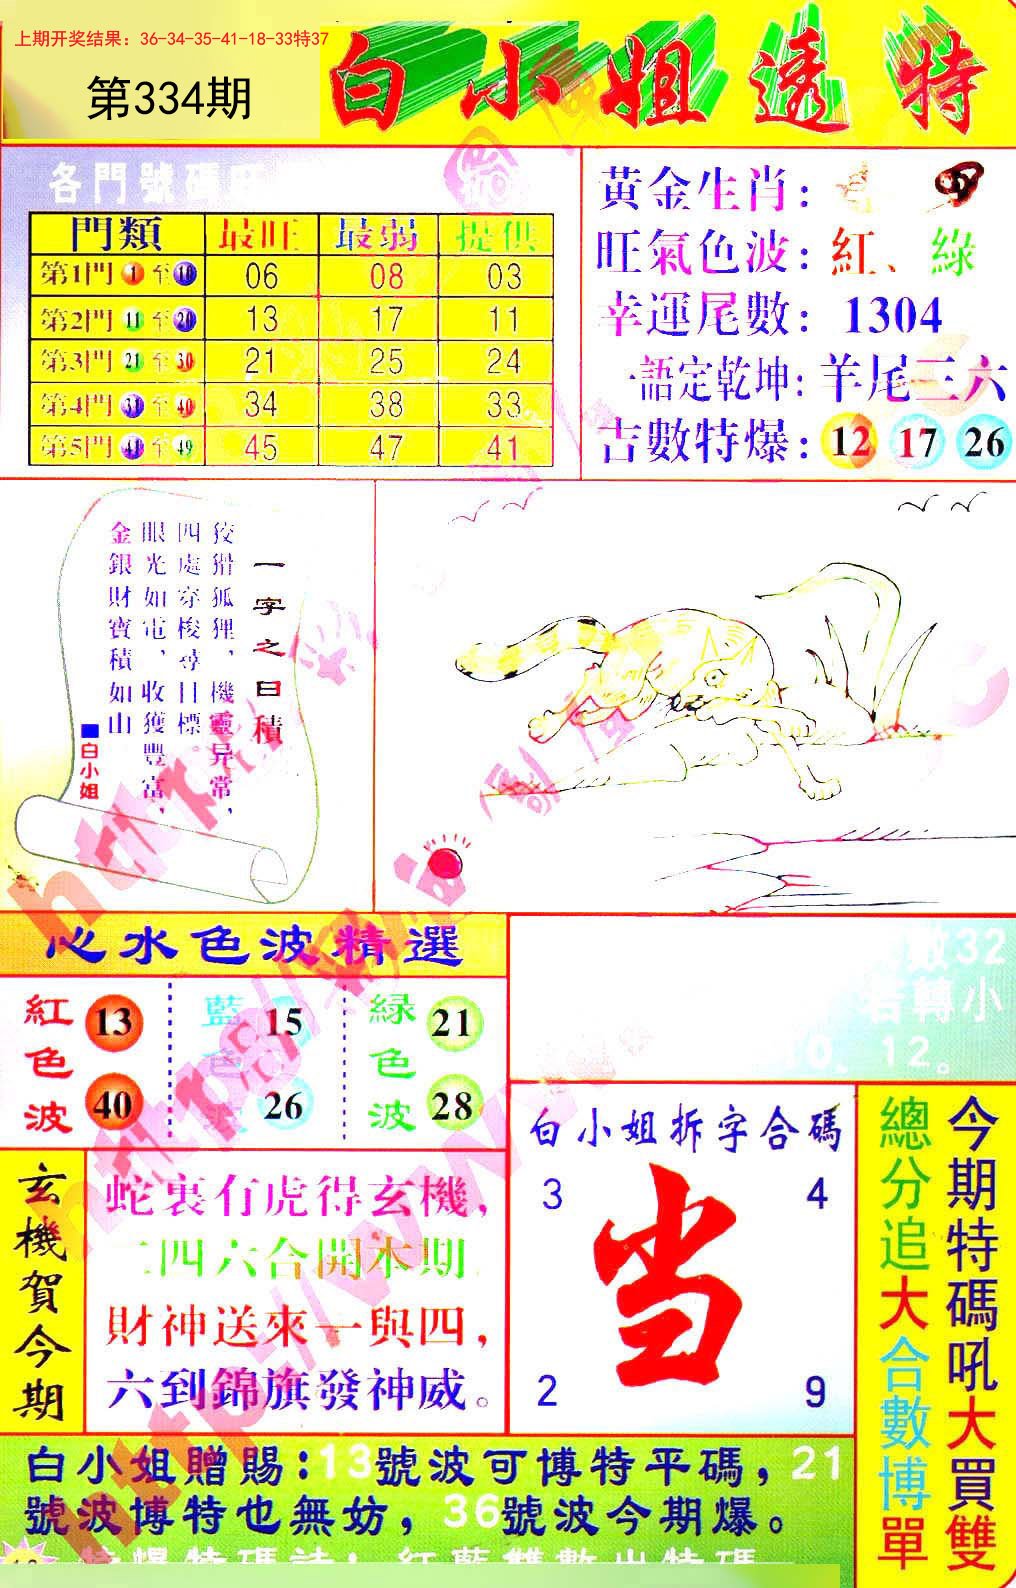 上期开奖结果：36-34-35-41-18-33特37
第334期
白小姐透特
各門號碼
門類 最旺 最弱 提供
第1門 1 至 10 06 08 03
第2門 11 至 20 13 17 11
第3門 21 至 30 21 25 24
第4門 31 至 40 34 38 33
第5門 41 至 49 45 47 41
黄金生肖：
旺氣色波：紅、綠
幸運尾數：1304
一語定乾坤：羊尾三六
吉數特爆：12 17 26
一字之曰積
狡猾狐狸，機靈异常，
四處穿梭尋目標
眼光如電，收獲豐富，
金銀財寶積如山
■白小姐
心水色波精選
紅色波 13 40
藍色波 15 26
綠色波 21 28
數32
若轉小
10、12。
玄機賀今期
蛇裏有虎得玄機，
二四六合開本期
財神送來一與四，
六到錦旗發神威。
白小姐拆字合碼
3 4
当
2 9
今期特碼吼大買雙
總分追大合數博單
白小姐贈賜：13號波可博特平碼，21
號波博特也無妨，36號波今期爆。
特碼詩：紅藍雙數出特碼